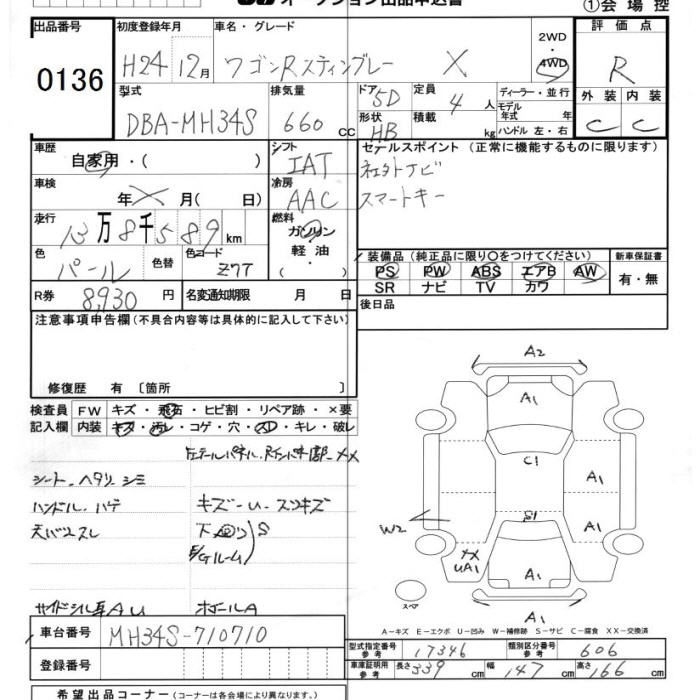 オークション出品申込書
①会場控
出品番号
0136
初度登録年月
H24 12月
車名・グレード
ワゴンRスティングレー X
2WD・4WD
評価点
R
型式
DBA-MH34S
排気量
660 cc
ドア
5D
形状
HB
定員
4人
積載
kg
ディーラー・並行
モデル年式 年
ハンドル 左・右
外装 内装
C C
車歴
自家用・( )
シフト
IAT
セールスポイント (正常に機能するものに限ります)
社外ナビ
スマートキー
車検
年 月( 日)
冷房
AAC
走行
13万8千589km
燃料
ガソリン・軽油・( )
色
パール
色替
色コード
Z7T
装備品 (純正品に限り○をつけてください)
PS PW ABS エアB AW
SR ナビ TV カワ
新車保証書
有・無
R券
8,930円
名変通知期限 月 日
後日品
注意事項申告欄 (不具合内容等は具体的に記入して下さい)
修復歴 有 〔箇所 〕
検査員記入欄
FW キズ・飛石・ヒビ割・リペア跡・×要
内装 キズ・汚レ・コゲ・穴・スレ・キレ・破レ
シート、ヘタリ シミ
ハンドル、ハゲ
キズ-U、スリキズ
下回り)S
E/Gルーム)
A2
A1
C1
A1
S1
A1
W2
XX
UA1
A1
A1
スペア
A-キズ E-エクボ U-凹み W-補修跡 S-サビ C-腐食 XX-交換済
車台番号
MH34S-710710
登録番号
型式指定番号 参考 17346
類別区分番号 参考 606
車庫証明用 参考 長さ 339cm 幅 147cm 高さ 166cm
希望出品コーナー (コーナーは各会場により異なります。)